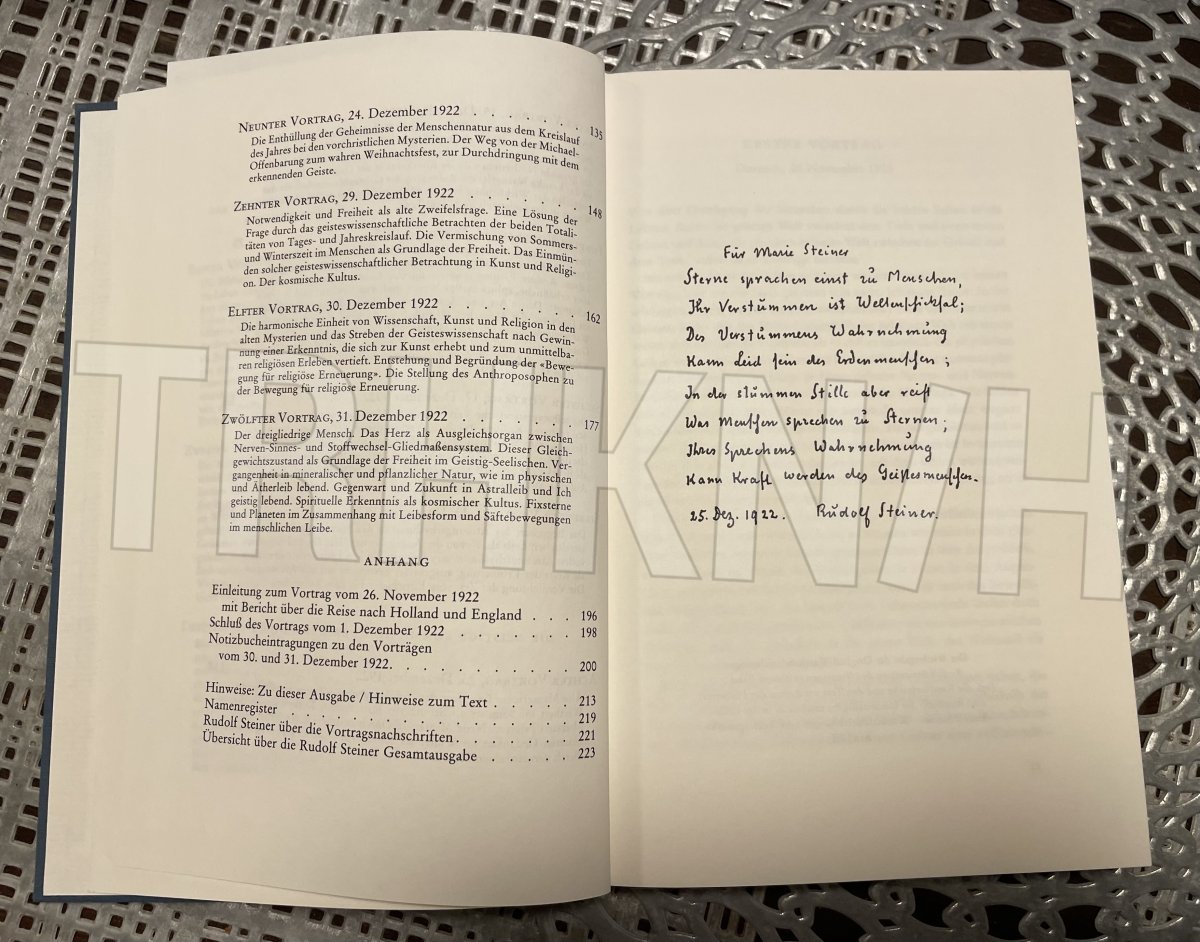 NEUNTER VORTRAG, 24. Dezember 1922 . . . . . . . 135
Die Enthüllung der Geheimnisse der Menschennatur aus dem Kreislauf
des Jahres bei den vorchristlichen Mysterien. Der Weg von der Michael-
Offenbarung zum wahren Weihnachtsfest, zur Durchdringung mit dem
erkennenden Geiste.
ZEHNTER VORTRAG, 29. Dezember 1922 . . . . . . . 148
Notwendigkeit und Freiheit als alte Zweifelsfrage. Eine Lösung der
Frage durch das geisteswissenschaftliche Betrachten der beiden Totali-
täten von Tages- und Jahreskreislauf. Die Vermischung von Sommers-
und Winterszeit im Menschen als Grundlage der Freiheit. Das Einmün-
den solcher geisteswissenschaftlicher Betrachtung in Kunst und Religi-
on. Der kosmische Kultus.
ELFTER VORTRAG, 30. Dezember 1922 . . . . . . . . 162
Die harmonische Einheit von Wissenschaft, Kunst und Religion in den
alten Mysterien und das Streben der Geisteswissenschaft nach Gewin-
nung einer Erkenntnis, die sich zur Kunst erhebt und zum unmittelba-
ren religiösen Erleben vertieft. Entstehung und Begründung der «Bewe-
gung für religiöse Erneuerung». Die Stellung des Anthroposophen zu
der Bewegung für religiöse Erneuerung.
ZWÖLFTER VORTRAG, 31. Dezember 1922 . . . . . . . 177
Der dreigliedrige Mensch. Das Herz als Ausgleichsorgan zwischen
Nerven-Sinnes- und Stoffwechsel-Gliedmaßensystem. Dieser Gleich-
gewichtszustand als Grundlage der Freiheit im Geistig-Seelischen. Ver-
gangenheit in mineralischer und pflanzlicher Natur, wie im physischen
und Ätherleib lebend. Gegenwart und Zukunft in Astralleib und Ich
geistig lebend. Spirituelle Erkenntnis als kosmischer Kultus. Fixsterne
und Planeten im Zusammenhang mit Leibesform und Säftebewegungen
im menschlichen Leibe.
ANHANG
Einleitung zum Vortrag vom 26. November 1922
mit Bericht über die Reise nach Holland und England . . . 196
Schluß des Vortrags vom 1. Dezember 1922 . . . . . . . 198
Notizbucheintragungen zu den Vorträgen
vom 30. und 31. Dezember 1922. . . . . . . . . . 200
Hinweise: Zu dieser Ausgabe / Hinweise zum Text . . . . . 213
Namenregister . . . . . . . . . . . . . . . . 219
Rudolf Steiner über die Vortragsnachschriften . . . . . . 221
Übersicht über die Rudolf Steiner Gesamtausgabe . . . . . 223
Für Marie Steiner
Sterne sprachen einst zu Menschen,
Ihr Verstummen ist Weltenschicksal;
Des Verstummens Wahrnehmung
Kann Leid sein des Erdenmenschen;
In der stummen Stille aber reift
Was Menschen sprechen zu Sternen;
Ihres Sprechens Wahrnehmung
Kann Kraft werden des Geistesmenschen.
25. Dez. 1922. Rudolf Steiner.